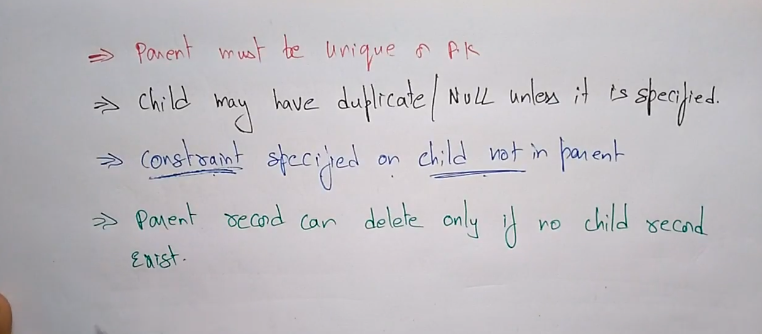 ⇒ Parent must be unique or PK
⇒ child may have duplicate/NULL unless it is specified.
⇒ Constraint specified on child not in parent
⇒ Parent record can delete only if no child record
exist.